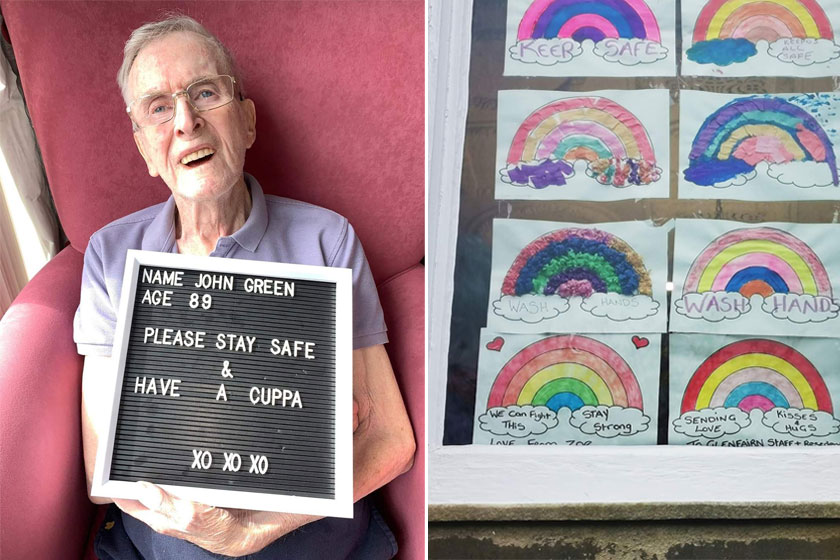 NAME JOHN GREEN
AGE 89
PLEASE STAY SAFE
&
HAVE A CUPPA
XO XO XO
KEEP SAFE
KEEPING
ALL
SAFE
WASH HANDS
WASH HAND
We Can Fight STAY
THIS STrong
Love From Zoe
SENDING Kisses
LOVE & HUGS
To GLENFAIRN STAFF +